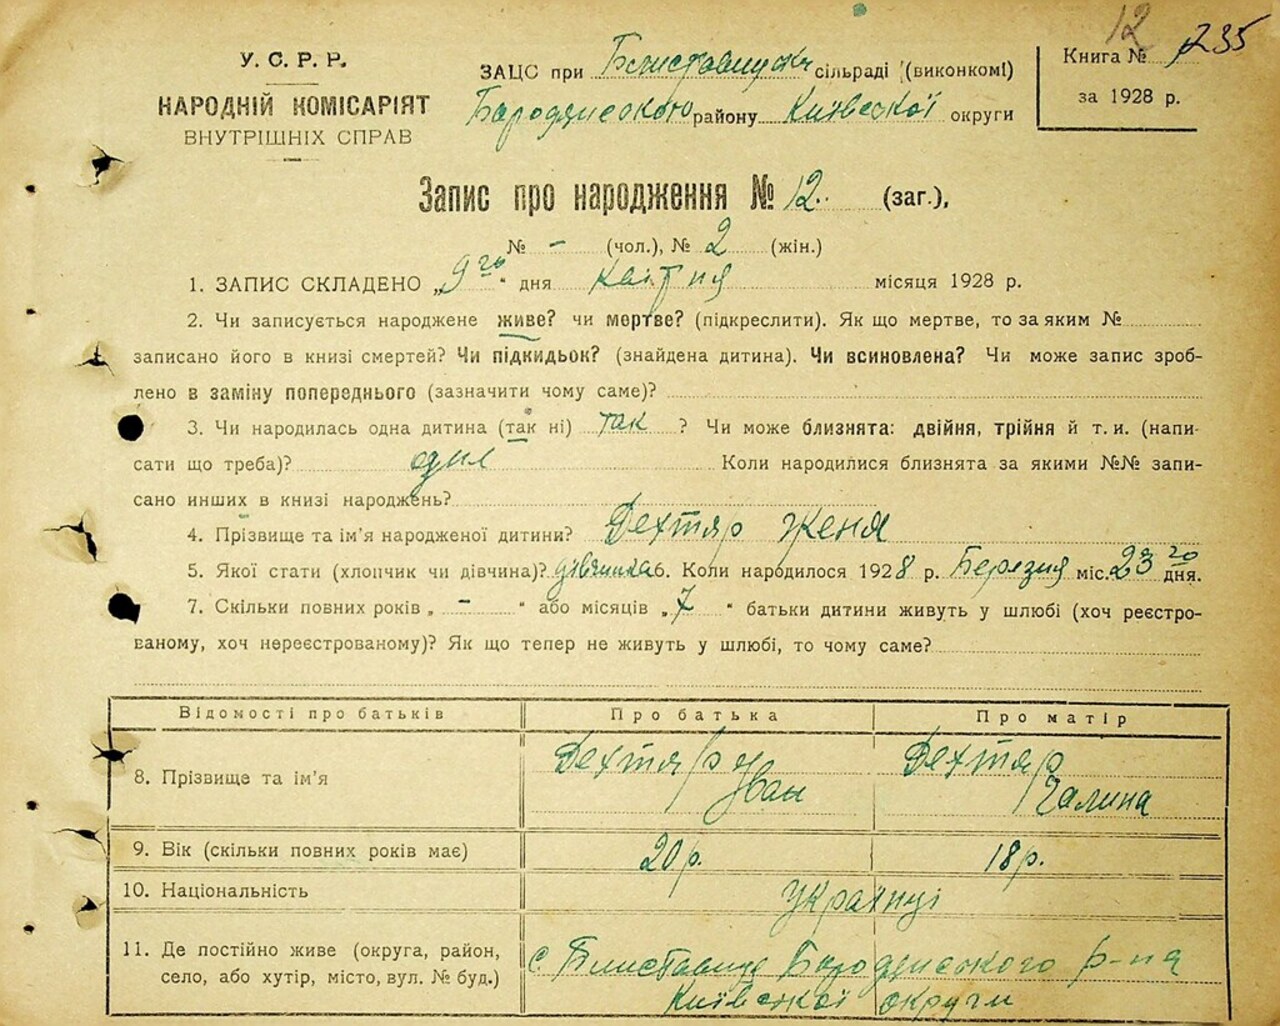 12 235
У. С. Р. Р.
НАРОДНІЙ КОМІСАРІЯТ
ВНУТРІШНІХ СПРАВ
ЗАЦС при сільраді (виконкомі)
Бородянського району Київської округи
Книга №
за 1928 р.
Запис про народження № 12. (заг.),
№ - (чол.), № 2 (жін.)
1. ЗАПИС СКЛАДЕНО „9го“ дня квітня місяця 1928 р.
2. Чи записується народжене живе? чи мертве? (підкреслити). Як що мертве, то за яким №
записано його в книзі смертей? Чи підкидьок? (знайдена дитина). Чи всиновлена? Чи може запис зроб-
лено в заміну попереднього (зазначити чому саме)?
3. Чи народилась одна дитина (так ні) так ? Чи може близнята: двійня, трійня й т. и. (напи-
сати що треба)? Коли народилися близнята за якими №№ запи-
сано инших в книзі народжень?
4. Прізвище та ім'я народженої дитини? Дехтяр Женя
5. Якої стати (хлопчик чи дівчина)? дівчинка 6. Коли народилося 1928 р. Березня міс. 23го дня.
7. Скільки повних років „ - “ або місяців „ 7 “ батьки дитини живуть у шлюбі (хоч реєстро-
ваному, хоч нереєстрованому)? Як що тепер не живуть у шлюбі, то чому саме?
Відомості про батьків Про батька Про матір
8. Прізвище та ім'я Дехтяр Іван Дехтяр Галина
9. Вік (скільки повних років має) 20 р. 18 р.
10. Національність Українці
11. Де постійно живе (округа, район,
село, або хутір, місто, вул. № буд.)
с Блиставиця Бородянського р-на
Київської округи